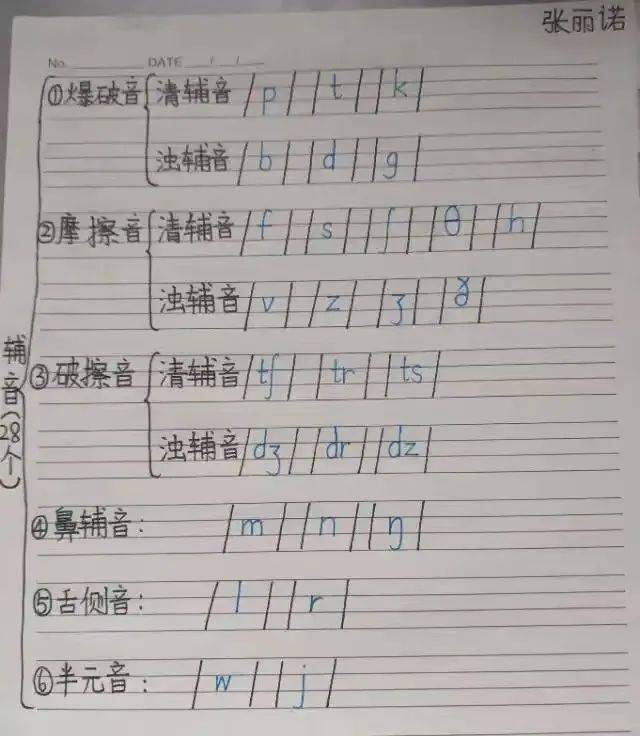 张丽诺
No. DATE / /
辅音(28个)
①爆破音 清辅音 /p/ /t/ /k/
浊辅音 /b/ /d/ /g/
②摩擦音 清辅音 /f/ /s/ /ʃ/ /θ/ /h/
浊辅音 /v/ /z/ /ʒ/ /ð/
③破擦音 清辅音 /tʃ/ /tr/ /ts/
浊辅音 /dʒ/ /dr/ /dz/
④鼻辅音: /m/ /n/ /ŋ/
⑤舌侧音: /l/ /r/
⑥半元音: /w/ /j/